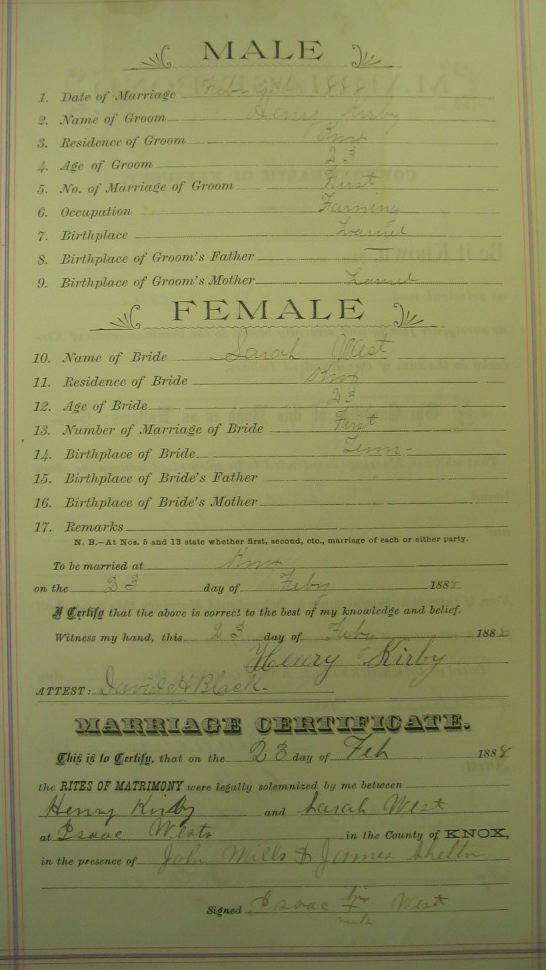 MALE
1. Date of Marriage Feb 23d
2. Name of Groom Henry Kirby
3. Residence of Groom Knox
4. Age of Groom 23
5. No. of Marriage of Groom First
6. Occupation Farming
7. Birthplace Laurel
8. Birthplace of Groom's Father —
9. Birthplace of Groom's Mother Laurel
FEMALE
10. Name of Bride Sarah West
11. Residence of Bride Knox
12. Age of Bride 23
13. Number of Marriage of Bride First
14. Birthplace of Bride Tenn-
15. Birthplace of Bride's Father
16. Birthplace of Bride's Mother
17. Remarks
N. B.—At Nos. 5 and 13 state whether first, second, etc., marriage of each or either party.
To be married at Knox
on the 23 day of Feby 1888
I Certify that the above is correct to the best of my knowledge and belief.
Witness my hand, this 23 day of Feby 1888
Henry Kirby
ATTEST: David H Black-
MARRIAGE CERTIFICATE.
This is to Certify, that on the 23 day of Feb 1888
the RITES OF MATRIMONY were legally solemnized by me between
Henry Kirby and Sarah West
at Isaac Wests in the County of KNOX,
in the presence of John Mills & James Shelton
Signed Isaac his West
mark